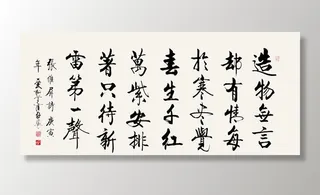 造物無言
却有情每
於寒尽覺
春生千紅
萬紫安排
著只待新
雷第一聲
張維屏詩庚寅
年